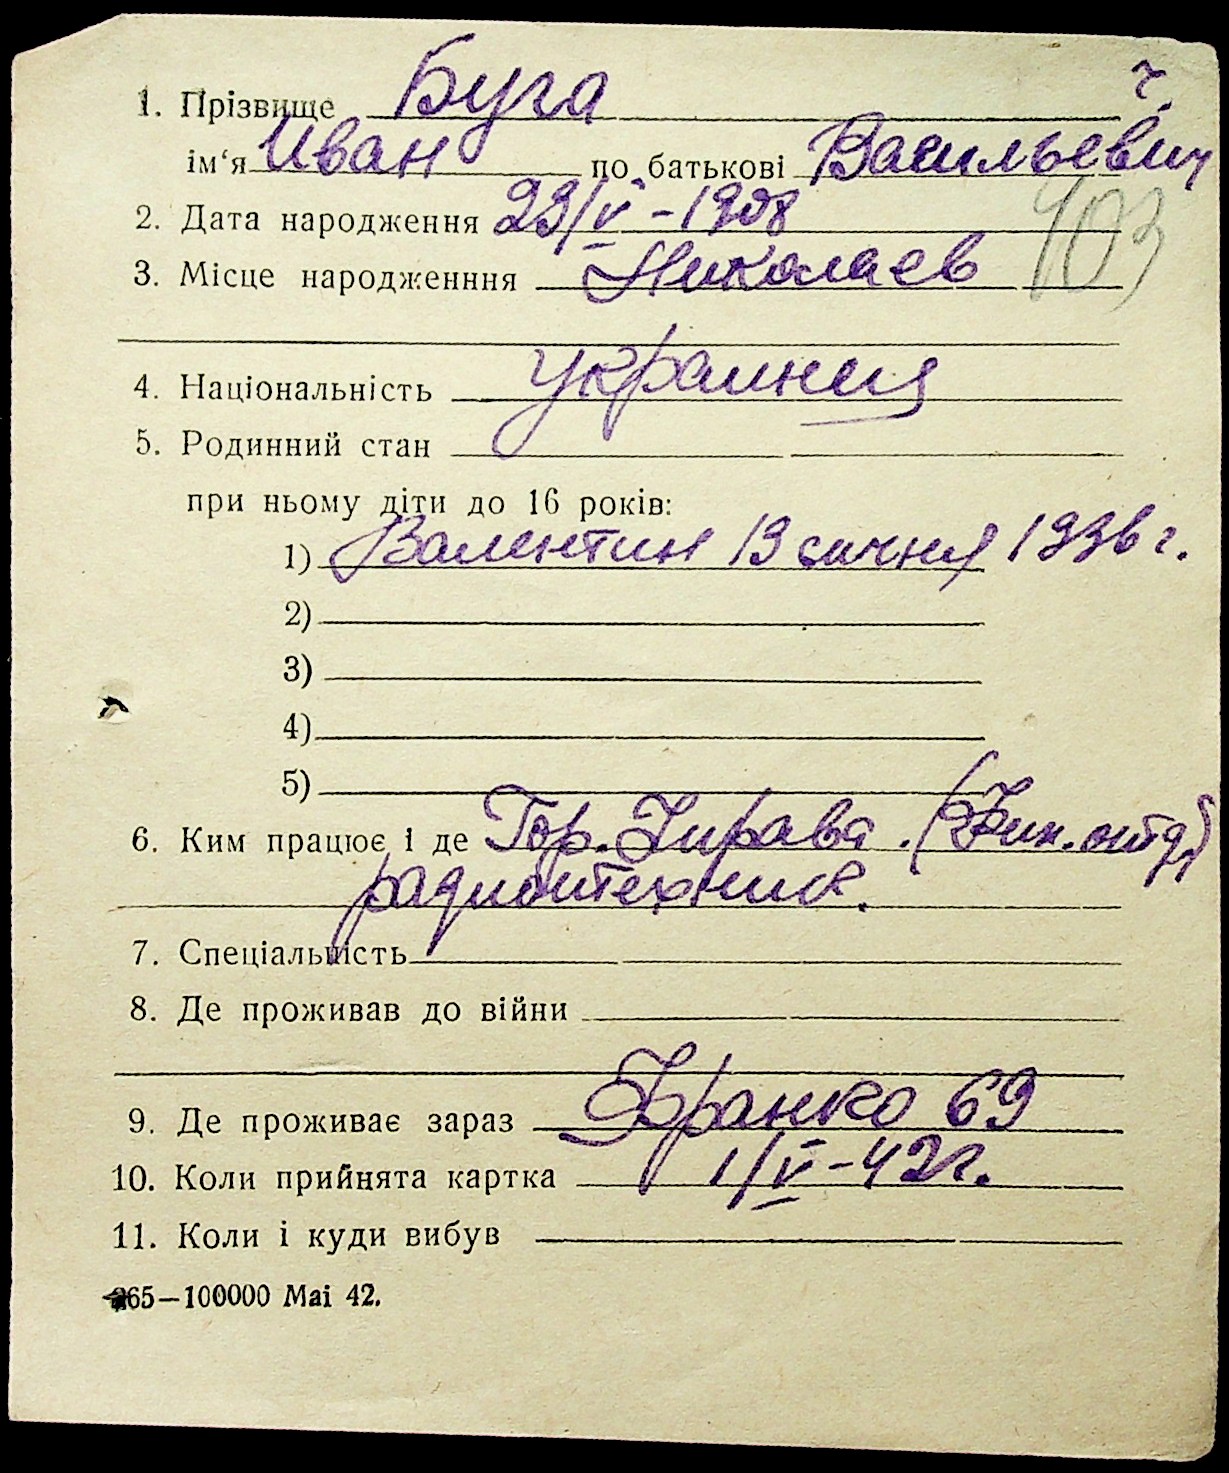 1. Прізвище Буга ч.
ім‘я Иван по батькові Васильевич
2. Дата народження 23/V - 1908
103
3. Місце народженння Николаев
4. Національність украинец
5. Родинний стан
при ньому діти до 16 років:
1) Валентин 13 сичня 1936 г.
2)
3)
4)
5)
6. Ким працює і де Гор. Управа. (Фин. отд.)
радиотехник.
7. Спеціальність
8. Де проживав до війни
9. Де проживає зараз Франко 69
10. Коли прийнята картка 1/V-42г.
11. Коли і куди вибув
265—100000 Mai 42.